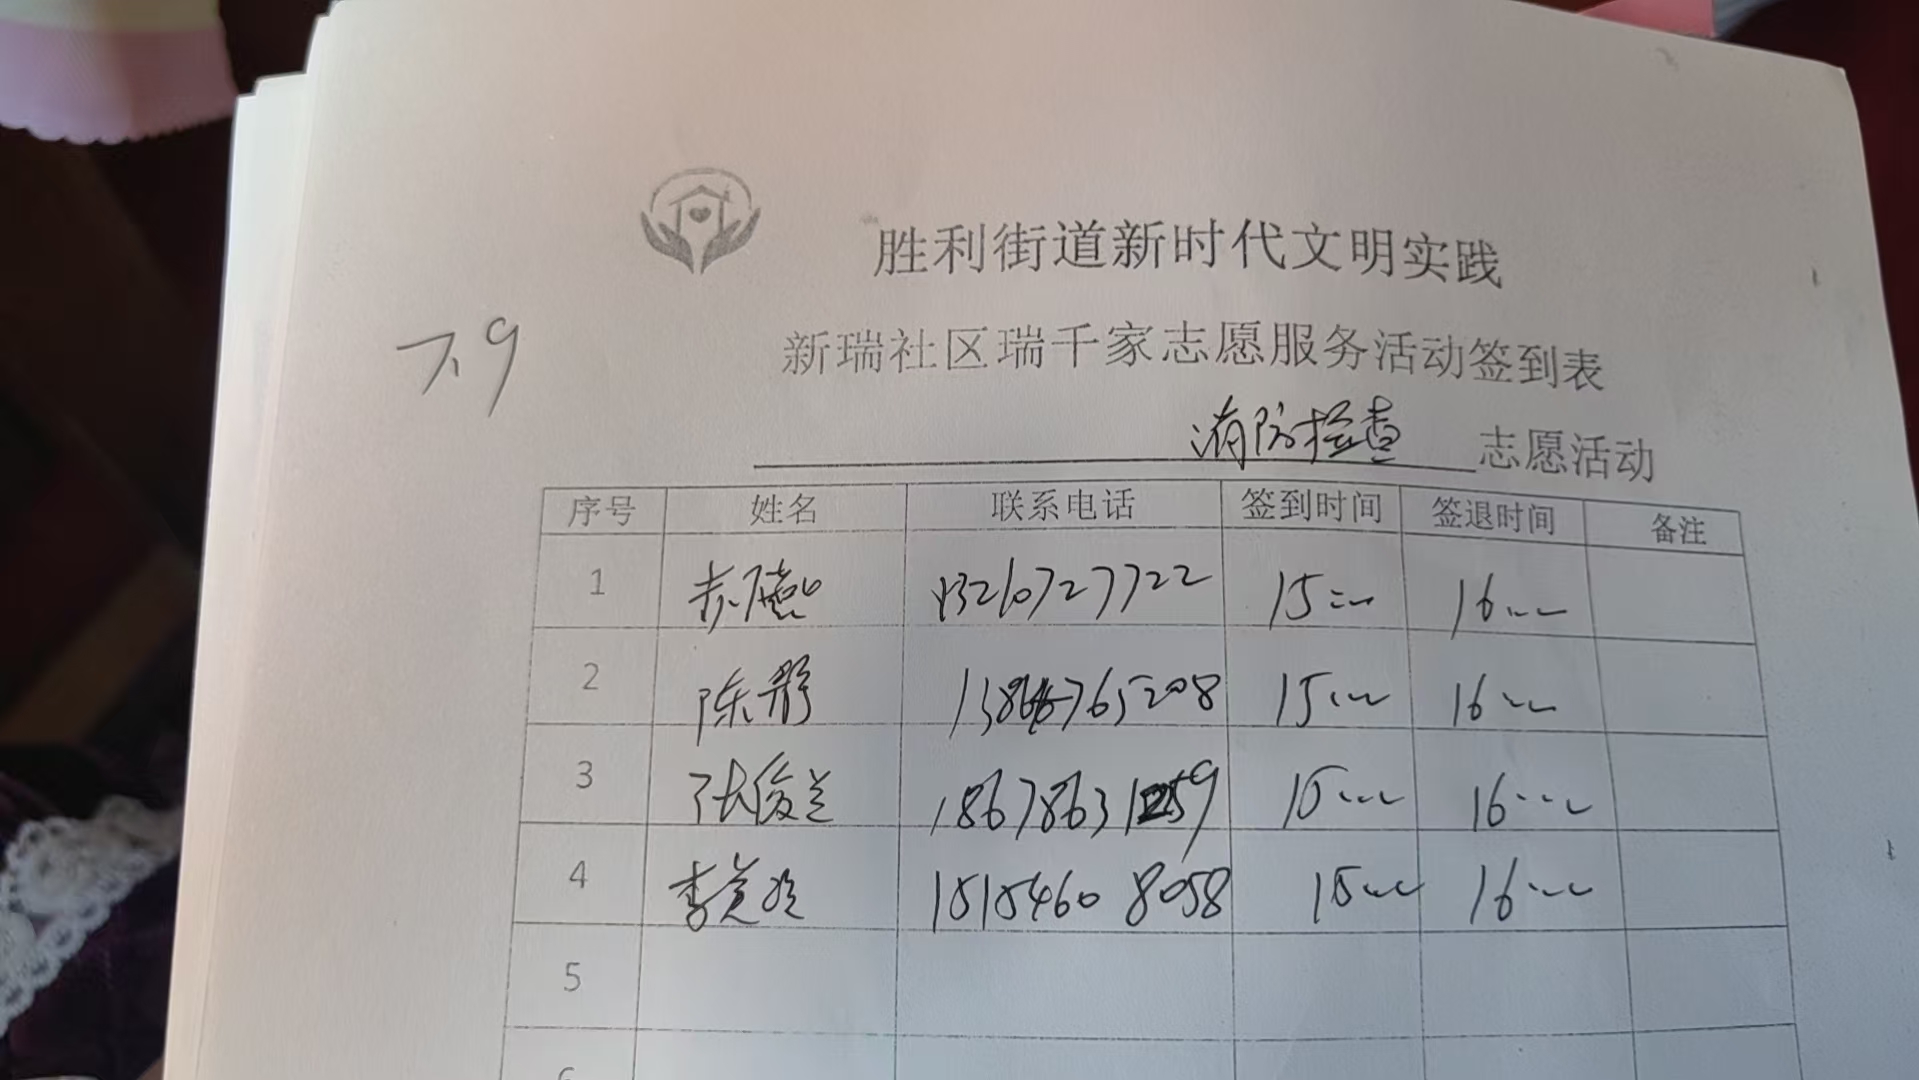 胜利街道新时代文明实践
7.9
新瑞社区瑞千家志愿服务活动签到表
消防检查 志愿活动
序号 姓名 联系电话 签到时间 签退时间 备注
1 13210727722 15:00 16:00
2 陈静 15:00 16:00
3 张俊兰 18678631259 15:00 16:00
4 李 15154608058 15:00 16:00
5
6